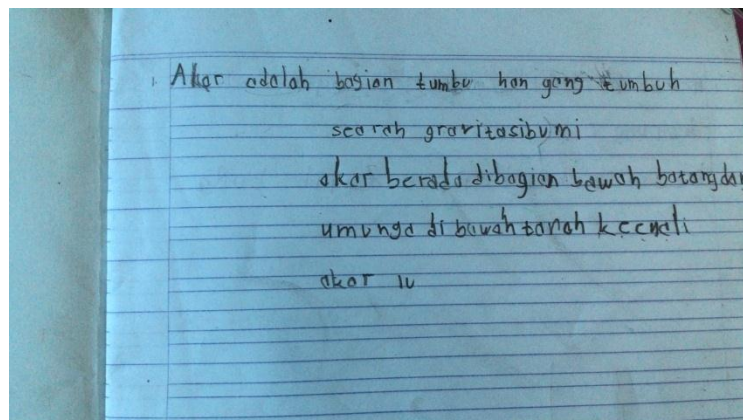 Akar adalah bagian tumbu han yang tumbuh
searah gravitasibumi
akar berada dibagian bawah batangdan
umunya di bawah tanah kecuali
akar lu